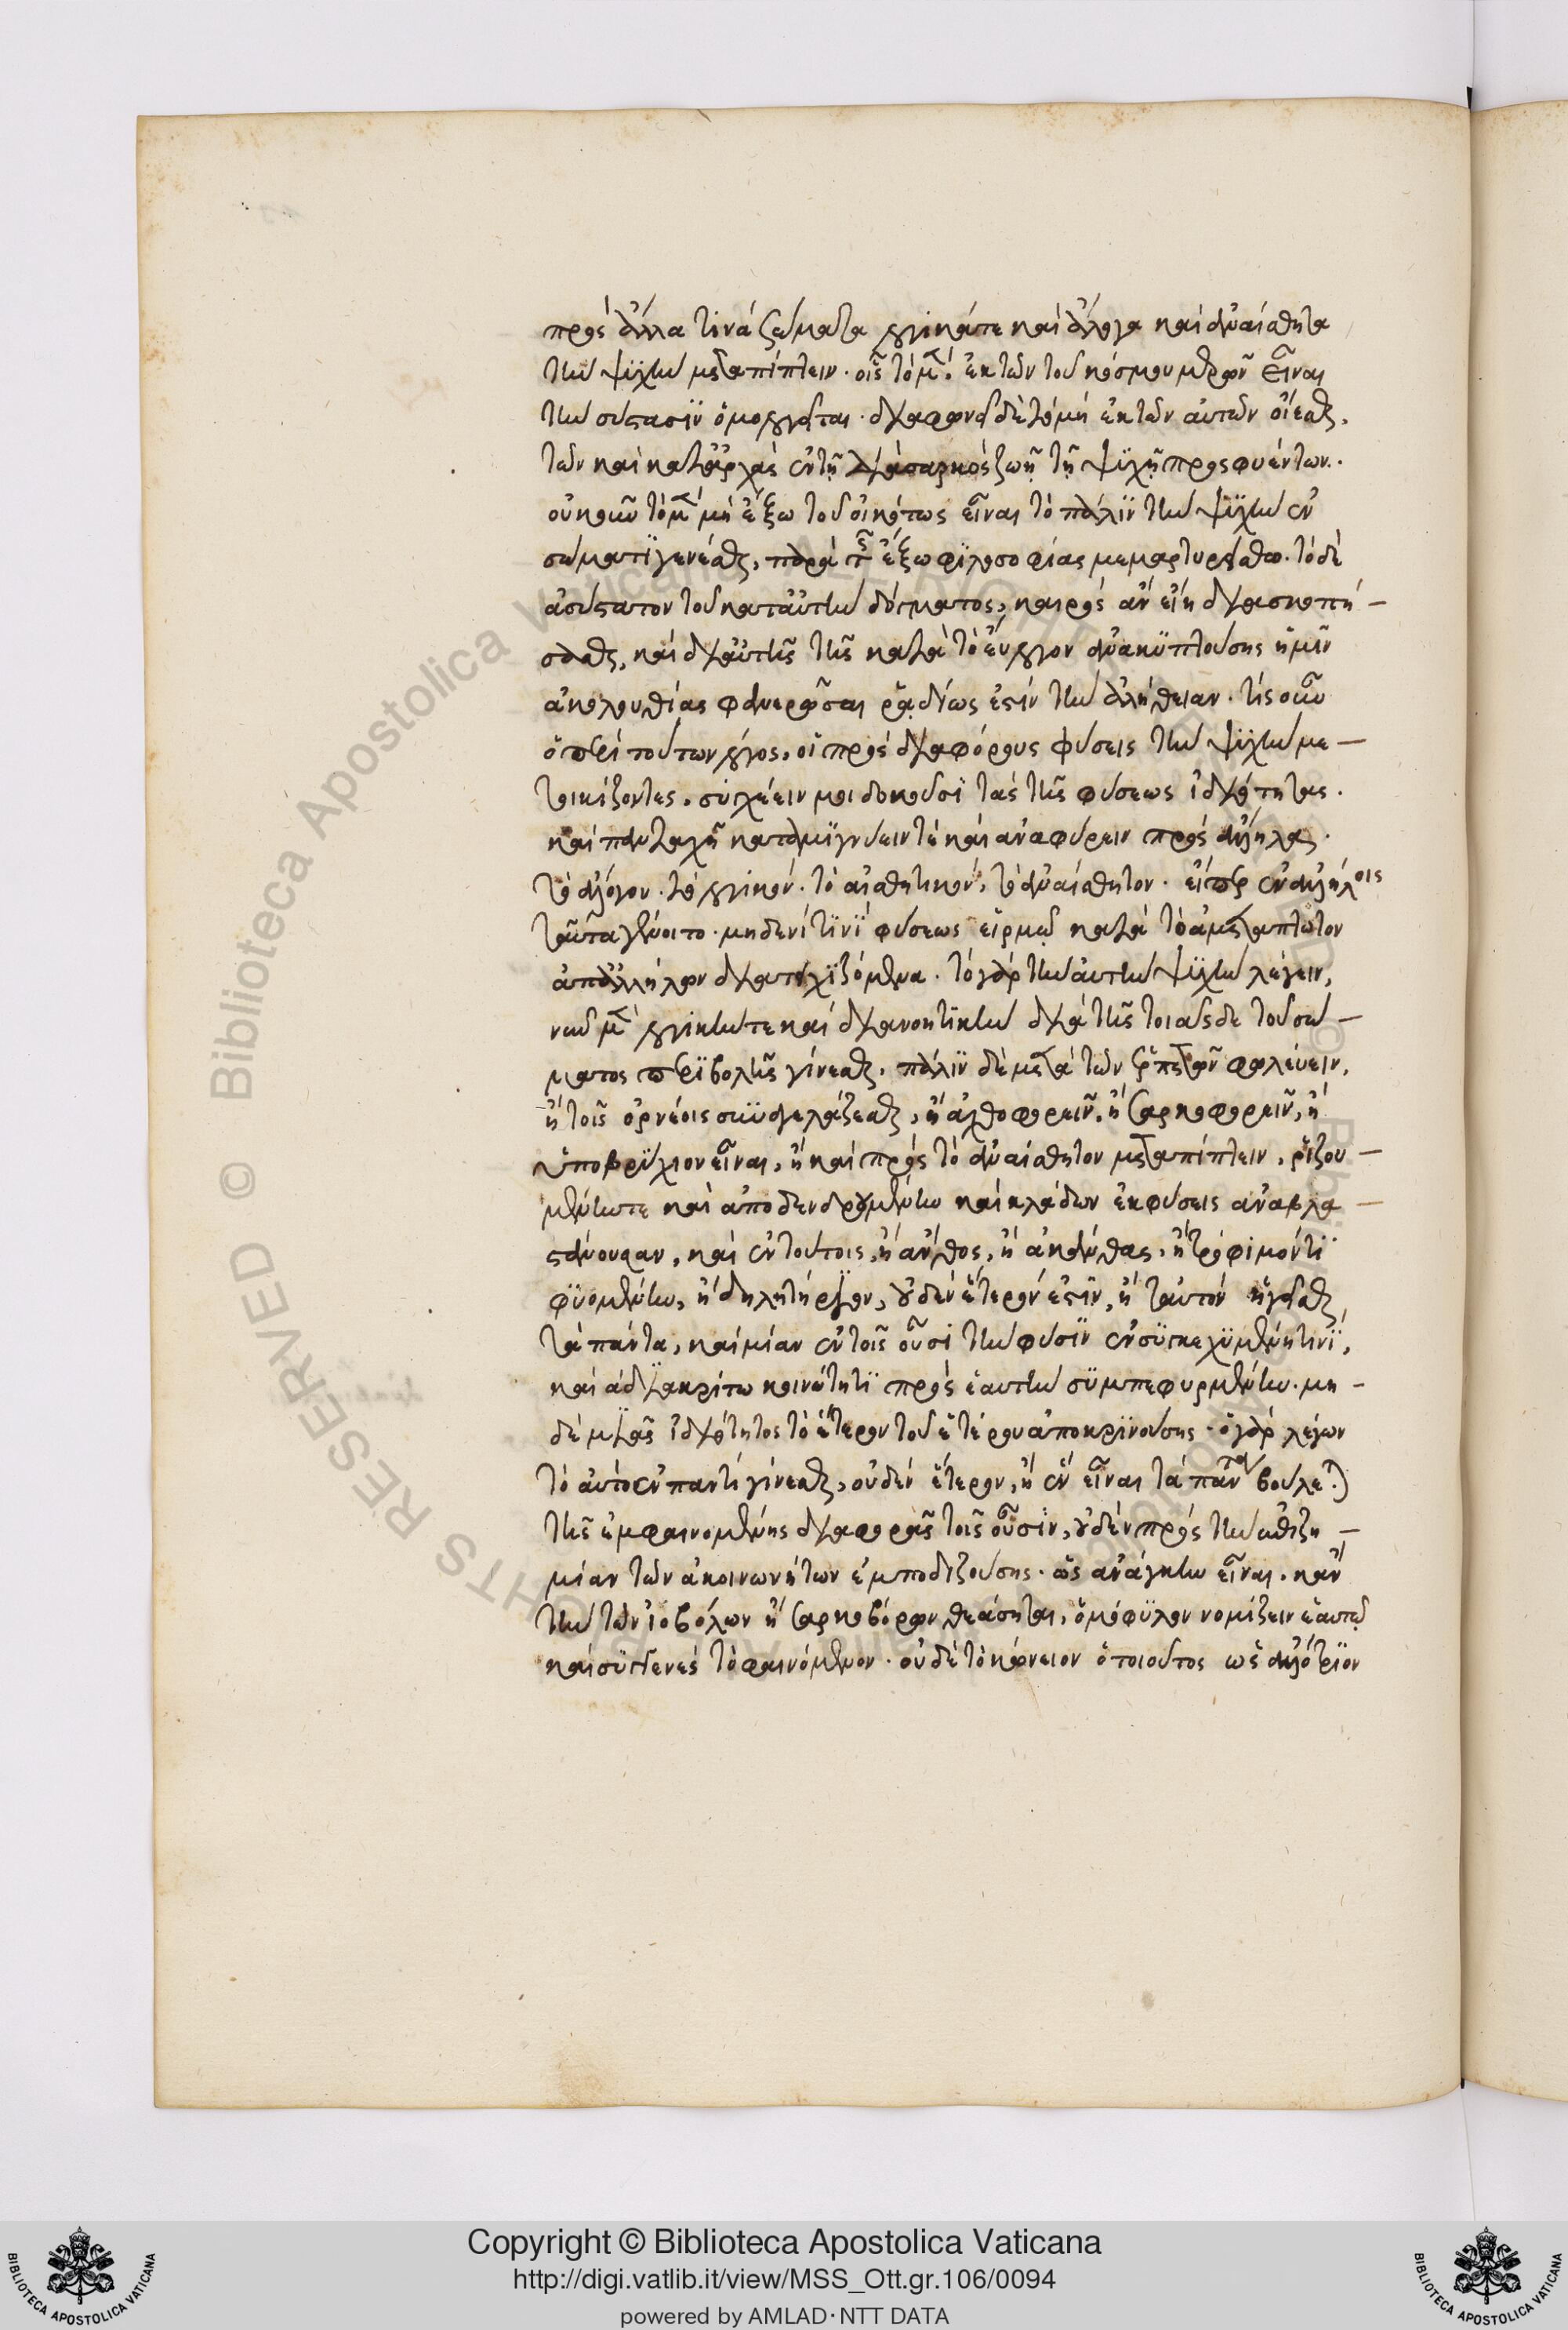 πρὸς ἄλλα τινὰ σώματα λογικά τε καὶ ἄλογα καὶ ἀναίσθητα
τὴν ψυχὴν μεταπίπτειν. οἷς τὸ μὲν ἐκ τῶν τοῦ κόσμου μερῶν εἶναι
τὴν σύστασιν ὁμολογεῖται. διαφωνεῖ δὲ τὸ μὴ ἐκ τῶν αὐτῶν οἴεσθαι,
τῶν καὶ κατ' ἀρχὰς ἐν τῇ διὰ σαρκὸς ζωῇ τῇ ψυχῇ προσφυέντων.
οὐκοῦν τὸ μὲν μὴ ἔξω τοῦ εἰκότως εἶναι τὸ πάλιν τὴν ψυχὴν ἐν
σώματι γενέσθαι, παρὰ τῆς ἔξω φιλοσοφίας μεμαρτυρείσθω. τὸ δὲ
ἀσύστατον τοῦ κατ' αὐτὴν δόγματος, καιρὸς ἂν εἴη διασκοπή-
σασθαι, καὶ δι' αὐτῆς τῆς κατὰ τὸ εὔλογον ἀνακυπτούσης ἡμῖν
ἀκολουθίας φανερῶσαι ῥᾳδίως ἐστὶν τὴν ἀλήθειαν. τίς οὖν
ὁ περὶ τούτων λόγος, οἱ πρὸς διαφόρους φύσεις τὴν ψυχὴν με-
τοικίζοντες, συγχέειν μοι δοκοῦσι τὰς τῆς φύσεως ἰδιότητας.
καὶ πανταχῆ καταμιγνύειν τὲ καὶ ἀναφύρειν πρὸς ἄλληλα.
τὸ ἄλογον. τὸ λογικὸν. τὸ αἰσθητικὸν, τὸ ἀναίσθητον. εἴπερ ἐν ἀλλήλοις
ταῦτα γένοιτο. μηδενί τινι φύσεως εἱρμῷ κατὰ τὸ ἀμετάπτωτον
ἀπ' ἀλλήλων διατειχιζόμενα. τὸ γὰρ τὴν αὐτὴν ψυχὴν λέγειν,
νῦν μὲν λογικήν τε καὶ διανοητικὴν διὰ τῆς τοιᾶσδε τοῦ σώ-
ματος περιβολῆς γίνεσθαι. πάλιν δὲ μετὰ τῶν ἑρπετῶν φωλεύειν,
ἢ τοῖς ὀρνέοις συναγελάζεσθαι, ἢ ἀχθοφορεῖν, ἢ σαρκοφορεῖν, ἢ
ὑποβρύχιον εἶναι, ἢ καὶ πρὸς τὸ ἀναίσθητον μεταπίπτειν, ῥιζου-
μένην τε καὶ ἀποδενδρουμένην καὶ κλάδων ἐκφύσεις ἀναβλα-
στάνουσαν, καὶ ἐν τούτοις, ἢ ἄνθος, ἢ ἀκάνθας, ἢ τρόφιμόν τι
φυομένην, ἢ δηλητήριον, οὐδὲν ἕτερόν ἐστιν, ἢ ταὐτὸν ἡγεῖσθαι
τὰ πάντα, καὶ μίαν ἐν τοῖς οὖσι τὴν φύσιν ἐν συγκεχυμένῃ τινὶ,
καὶ ἀδιακρίτῳ κοινότητι πρὸς ἑαυτὴν συμπεφυρμένην. μη-
δὲ μιᾶς ἰδιότητος τὸ ἕτερον τοῦ ἑτέρου ἀποκρινούσης. ὁ γὰρ λέγων
τὸ αὐτὸ ἐν παντὶ γίνεσθαι, οὐδὲν ἕτερον, ἢ ἓν εἶναι τὰ πάντα βούλεται
τῆς ἐμφαινομένης διαφορᾶς τοῖς οὖσιν, οὐδὲν πρὸς τὴν ἐπιξη-
μίαν τῶν ἀκοινωνήτων ἐμποδιζούσης. ὡς ἀνάγκην εἶναι. κἂν
τὴν τῶν ἰοβόλων ἢ σαρκοβόρων θεάσηται, ὁμόφυλον νομίζειν ἑαυτῷ
καὶ συγγενὲς τὸ φαινόμενον. οὐδὲ τὸ κώνειον ὁ τοιοῦτος ὡς ἀλλότριον